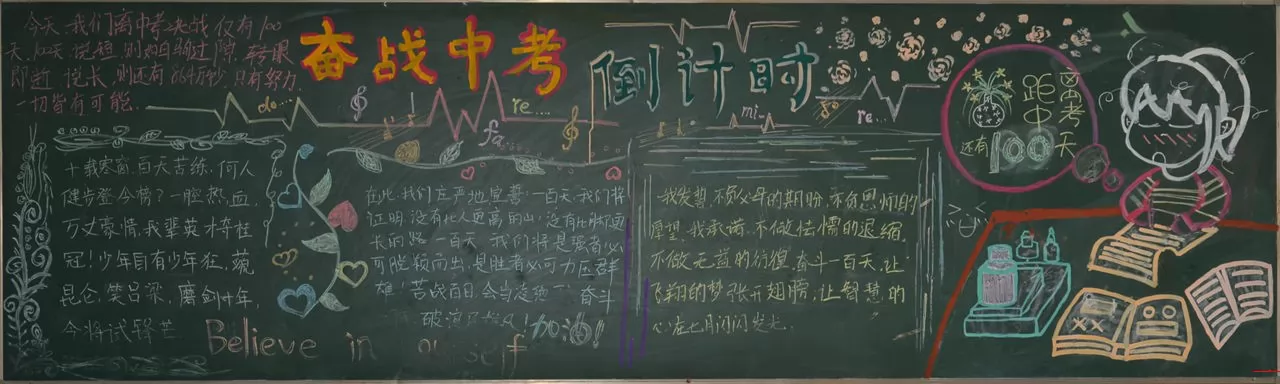 今天,我们离中考决战仅有100
天,100天说短,则如白驹过隙,转眼
即逝 说长,则还有864万秒,只有努力,
一切皆有可能.
奋战中考
倒计时
do...
re...
fa...
mi...
re...
十载寒窗,百天苦练,何人
健步登金榜?一腔热血,
万丈豪情,我辈英才夺桂
冠!少年自有少年狂,藐
昆仑,笑吕梁,磨剑十年,
今将试锋芒
Believe in
在此,我们庄严地宣誓:一百天,我们将
证明,没有比人更高的山,没有比脚更
长的路 一百天 我们将是强者必
可脱颖而出,是胜者必可力压群
雄!苦战百日,会当凌绝 奋斗
破 加油!
我发誓,不负父母的期盼,不负恩师的
厚望.我承诺,不做怯懦的退缩,
不做无益的彷徨,奋斗一百天,让
飞翔的梦张开翅膀,让智慧的
心在七月闪闪发光.
距离
中考
还有100天